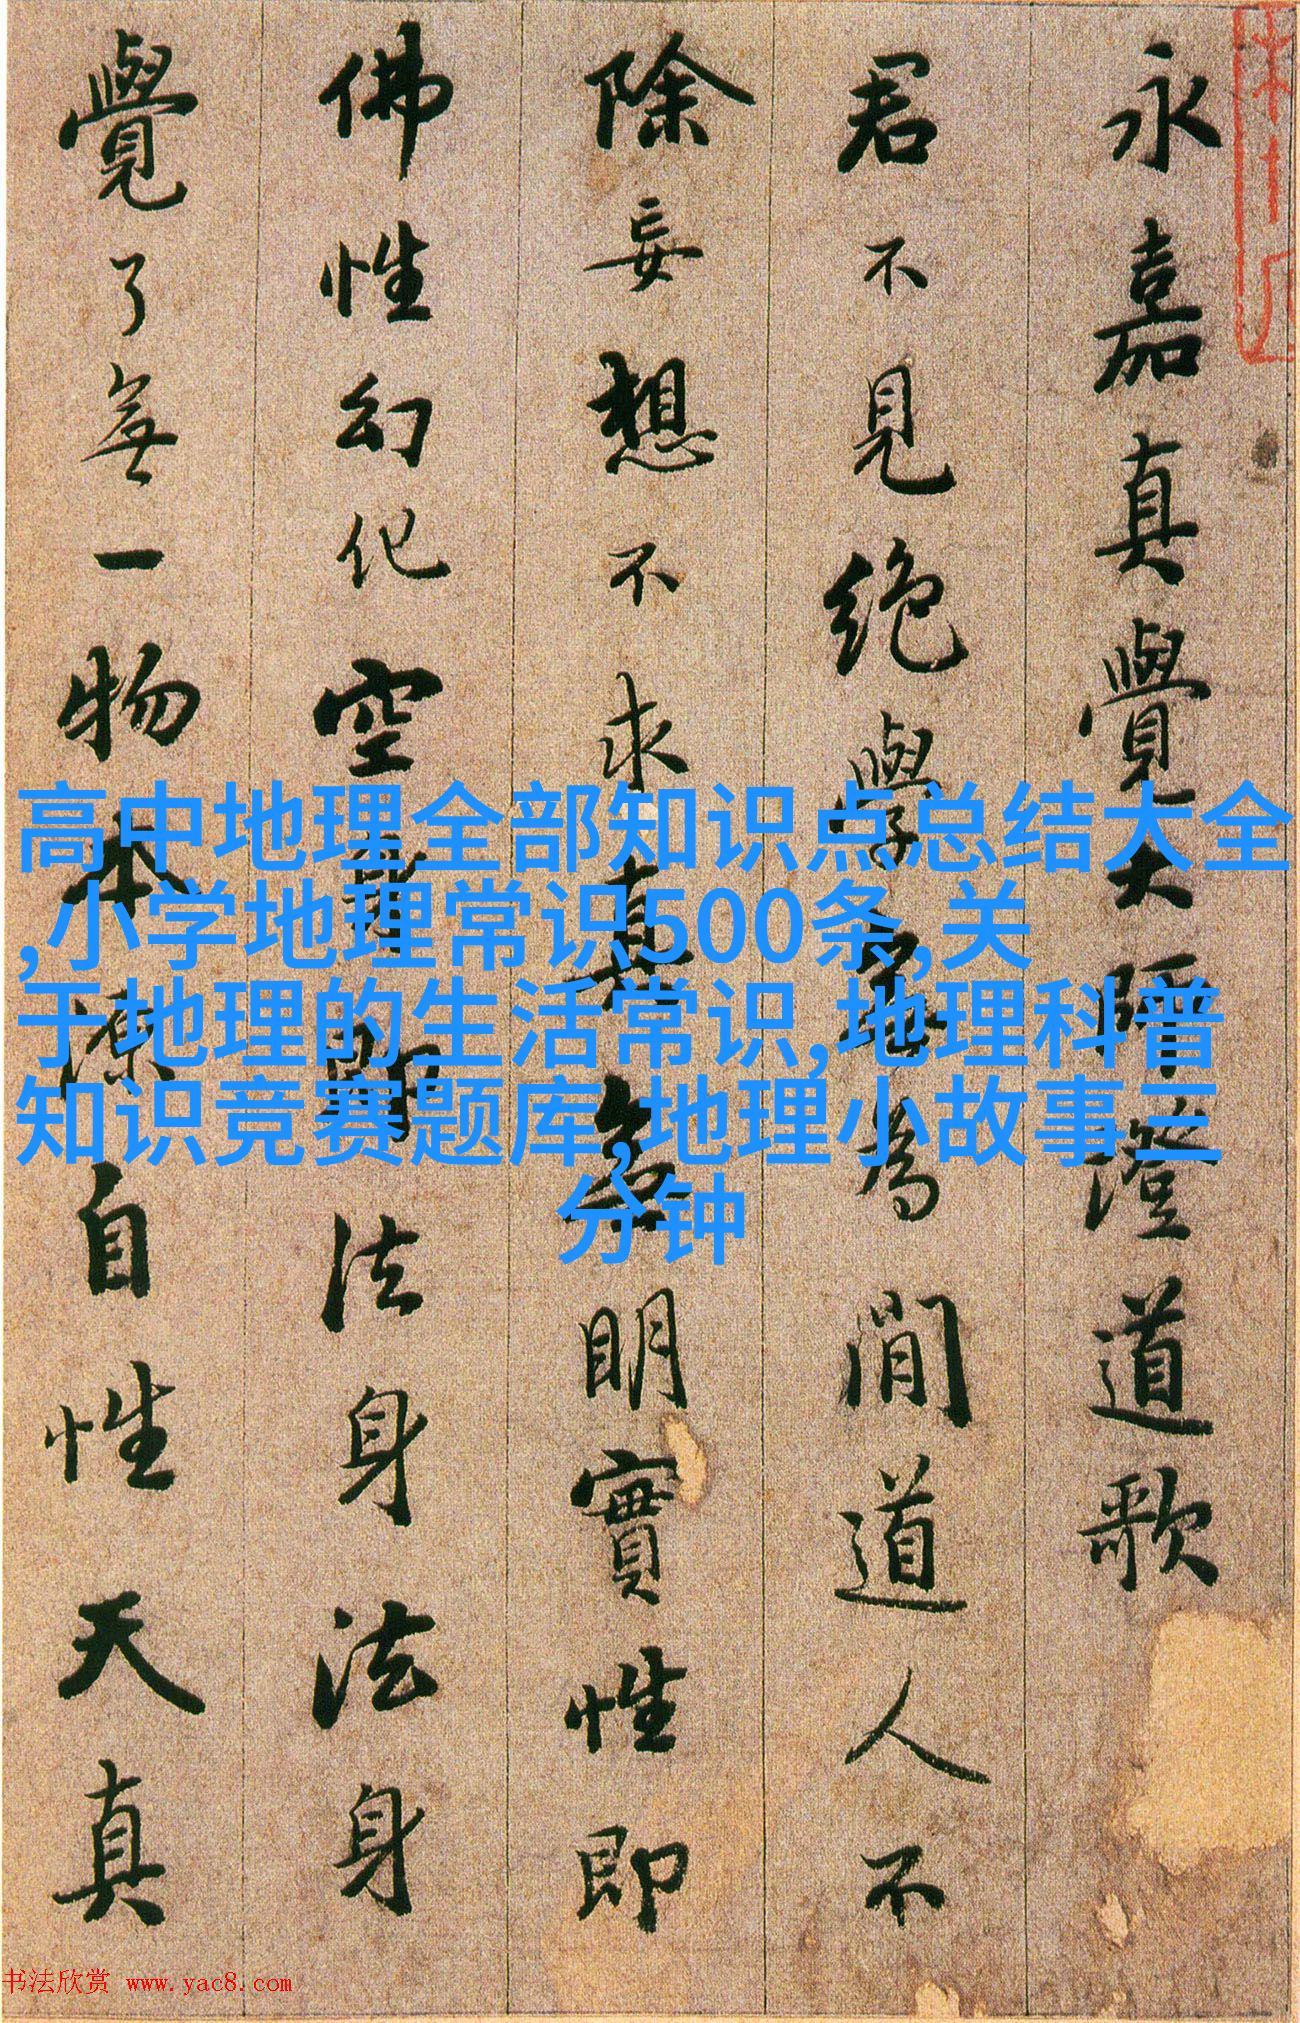 永嘉真覺大師證道歌
君不見絕學無為閒道人不
除妄想不求真無明實性即
佛性幻化空身即法身法身
覺了無一物本源自性天真
高中地理全部知识点总结大全
,小学地理常识500条,关
于地理的生活常识,地理科普
知识竞赛题库,地理小故事三
分钟
书法欣赏 www.yac8.com